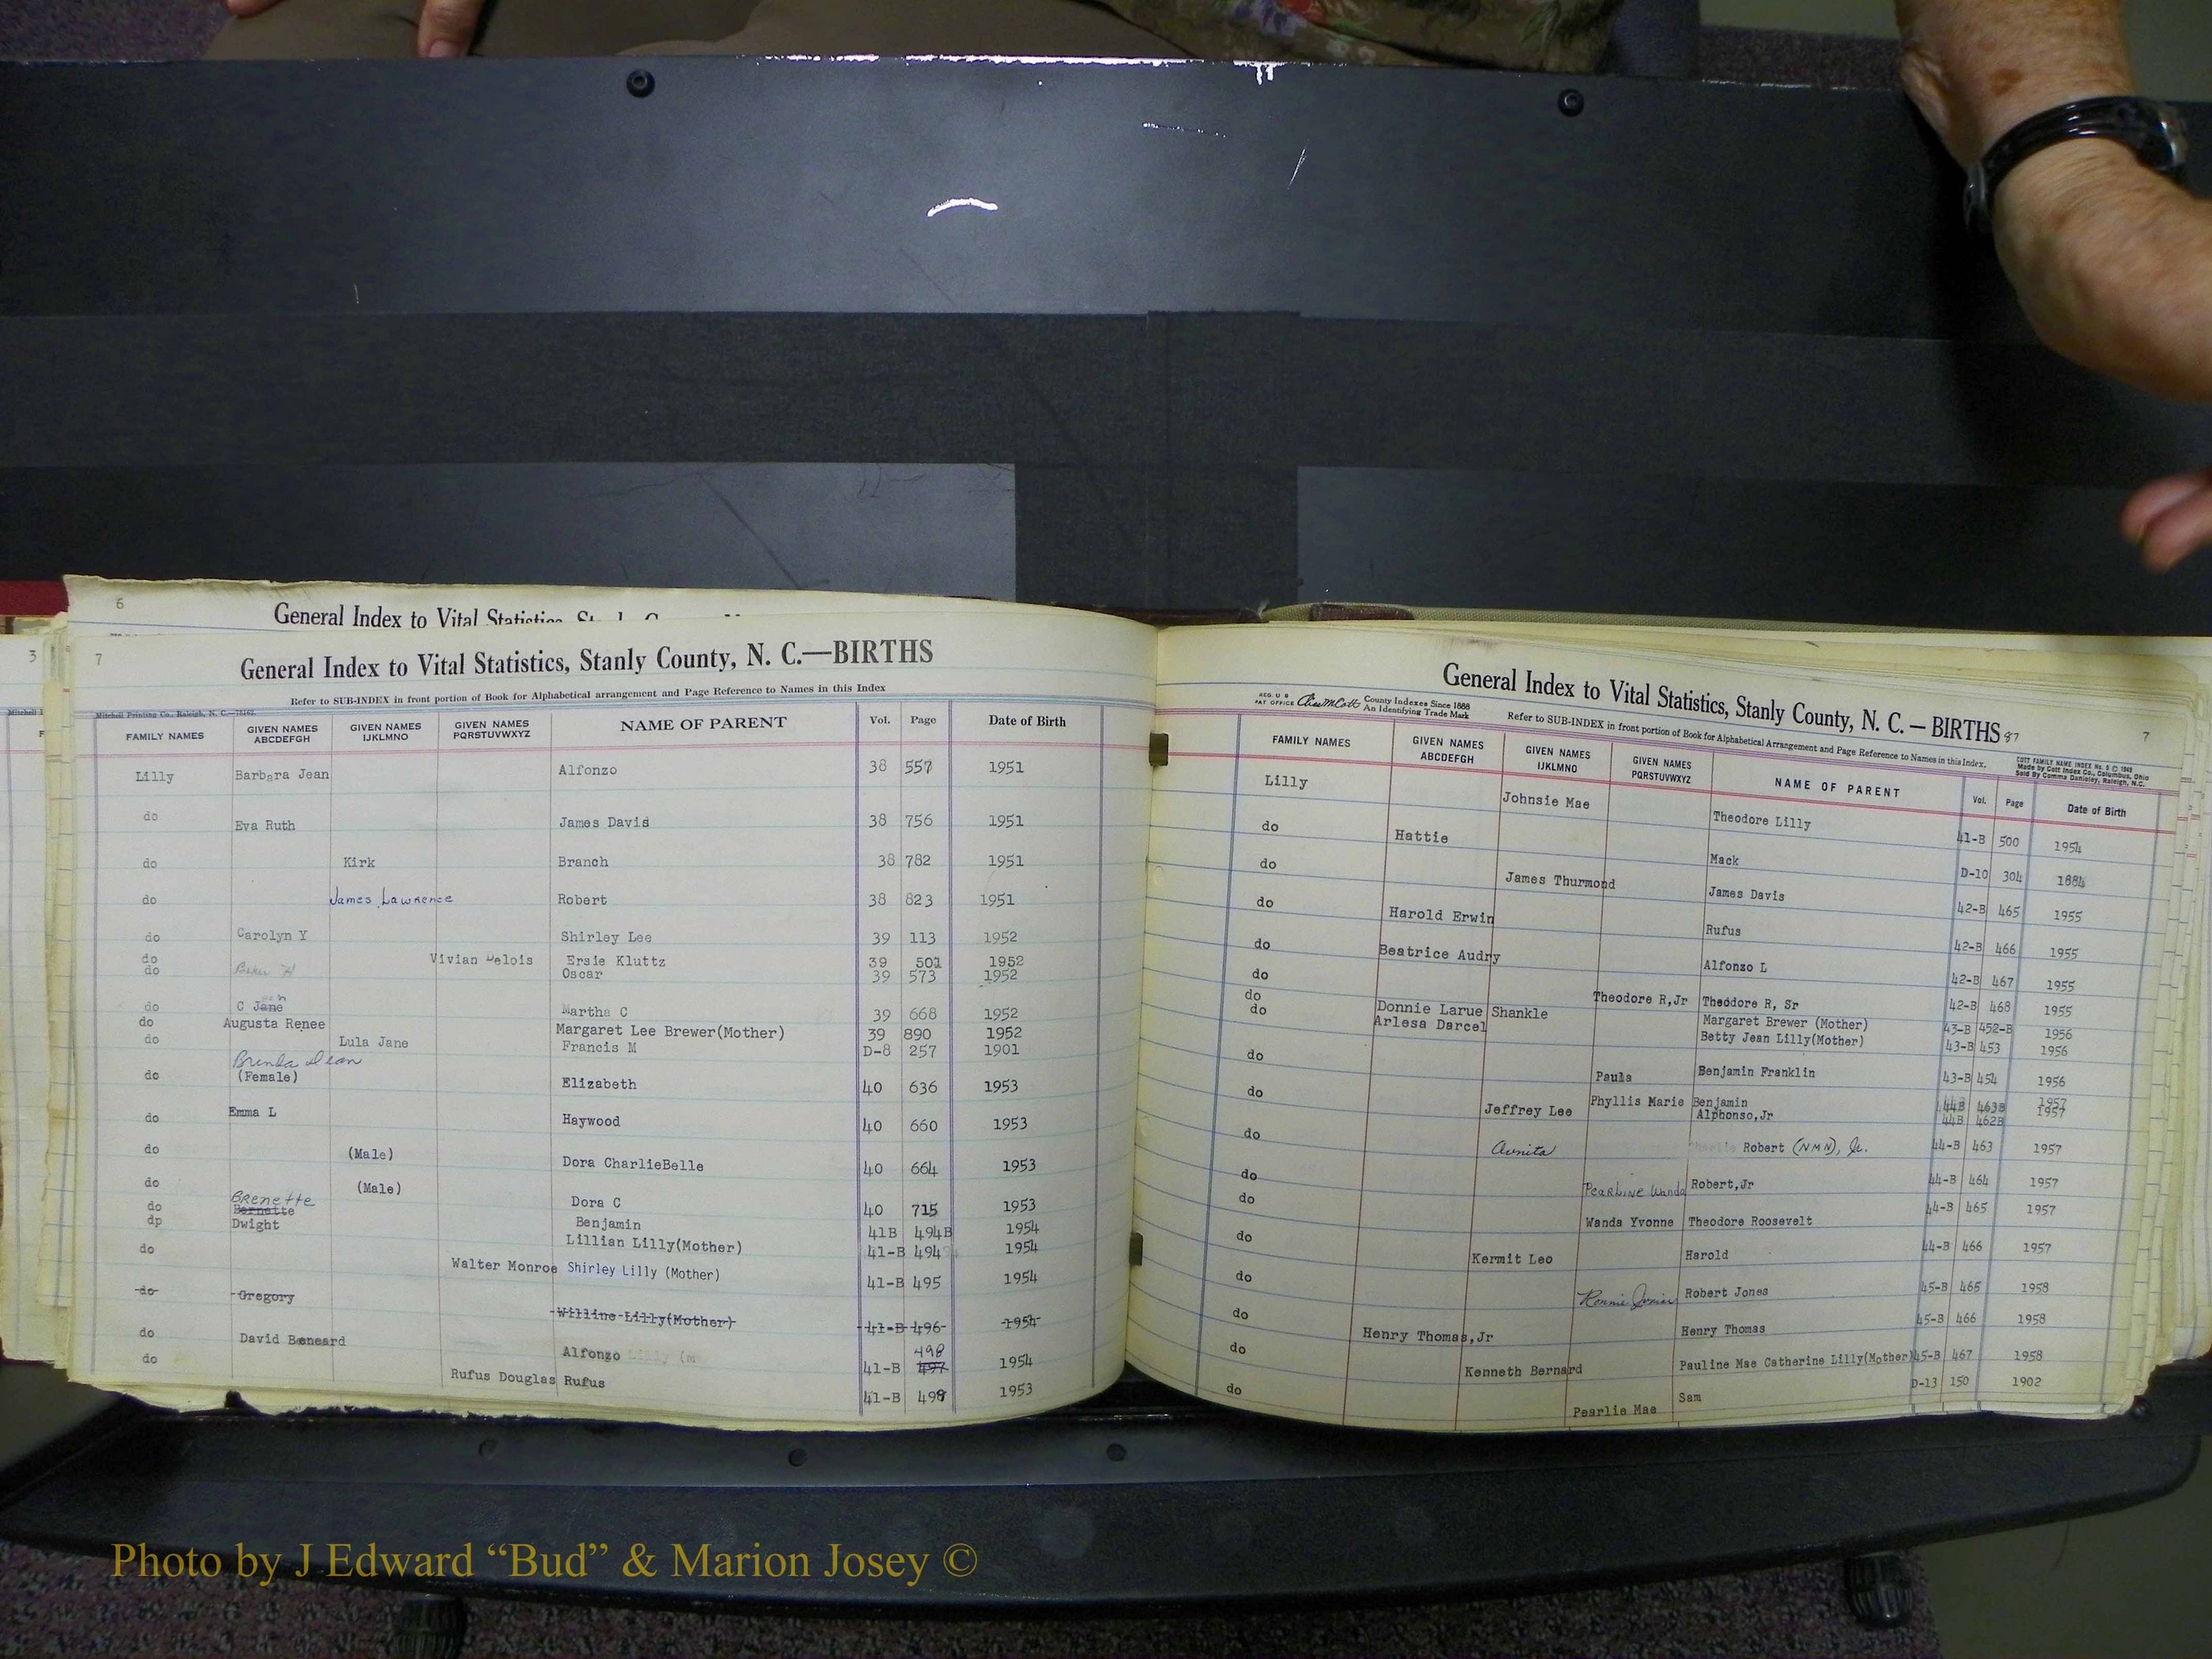 6
General Index to Vital Statistics,
3
7
General Index to Vital Statistics, Stanly County, N. C.—BIRTHS
Refer to SUB-INDEX in front portion of Book for Alphabetical arrangement and Page Reference to Names in this Index
Mitchell Printing Co., Raleigh, N. C.
FAMILY NAMES GIVEN NAMES ABCDEFGH GIVEN NAMES IJKLMNO GIVEN NAMES PQRSTUVWXYZ NAME OF PARENT Vol. Page Date of Birth
Lilly Barbara Jean Alfonzo 38 557 1951
do Eva Ruth James Davis 38 756 1951
do Kirk Branch 38 782 1951
do James Lawrence Robert 38 823 1951
do Carolyn Y Shirley Lee 39 113 1952
do Vivian Delois Ersie Kluttz 39 501 1952
do Oscar 39 573 1952
do C Jane Martha C 39 668 1952
do Augusta Renee Margaret Lee Brewer(Mother) 39 890 1952
do Lula Jane Francis M D-8 257 1901
Brenda Dean
do (Female) Elizabeth 40 636 1953
do Emma L Haywood 40 660 1953
do (Male) Dora CharlieBelle 40 664 1953
do (Male) Dora C 40 715 1953
Brenette
do Bernette Benjamin 41B 494B 1954
dp Dwight Lillian Lilly(Mother) 41-B 494 1954
do Walter Monroe Shirley Lilly (Mother) 41-B 495 1954
do Gregory Willine Lilly(Mother) 41-B 496 1954
498
do David Beneard Alfonzo 41-B 497 1954
do Rufus Douglas Rufus 41-B 498 1953
General Index to Vital Statistics, Stanly County, N. C. — BIRTHS 87
7
REG. U S PAT OFFICE County Indexes Since 1888 An Identifying Trade Mark
Refer to SUB-INDEX in front portion of Book for Alphabetical Arrangement and Page Reference to Names in this Index.
COTT FAMILY NAME INDEX No. 5 © 1949
Made by Cott Index Co., Columbus, Ohio
Sold By Comma Danieley, Raleigh, N.C.
FAMILY NAMES GIVEN NAMES ABCDEFGH GIVEN NAMES IJKLMNO GIVEN NAMES PQRSTUVWXYZ NAME OF PARENT Vol. Page Date of Birth
Lilly Johnsie Mae Theodore Lilly 41-B 500 1954
do Hattie Mack D-10 304 1884
do James Thurmond James Davis 42-B 465 1955
do Harold Erwin Rufus 42-B 466 1955
do Beatrice Audry Alfonzo L 42-B 467 1955
do Theodore R,Jr Theodore R, Sr 42-B 468 1955
do Donnie Larue Shankle Margaret Brewer (Mother) 43-B 452-B 1956
do Arlesa Darcel Betty Jean Lilly(Mother) 43-B 453 1956
do Paula Benjamin Franklin 43-B 454 1956
Phyllis Marie Benjamin 44B 463B 1957
do Jeffrey Lee Alphonso,Jr 44B 462B 1957
do Avnita Robert (NMN), Jr. 44-B 463 1957
do Pearline Wanda Robert,Jr 44-B 464 1957
do Wanda Yvonne Theodore Roosevelt 44-B 465 1957
do Kermit Leo Harold 44-B 466 1957
do Ronnie Junior Robert Jones 45-B 465 1958
do Henry Thomas,Jr Henry Thomas 45-B 466 1958
do Kenneth Bernard Pauline Mae Catherine Lilly(Mother) 45-B 467 1958
do Pearlie Mae Sam D-13 150 1902
Photo by J Edward “Bud” & Marion Josey ©